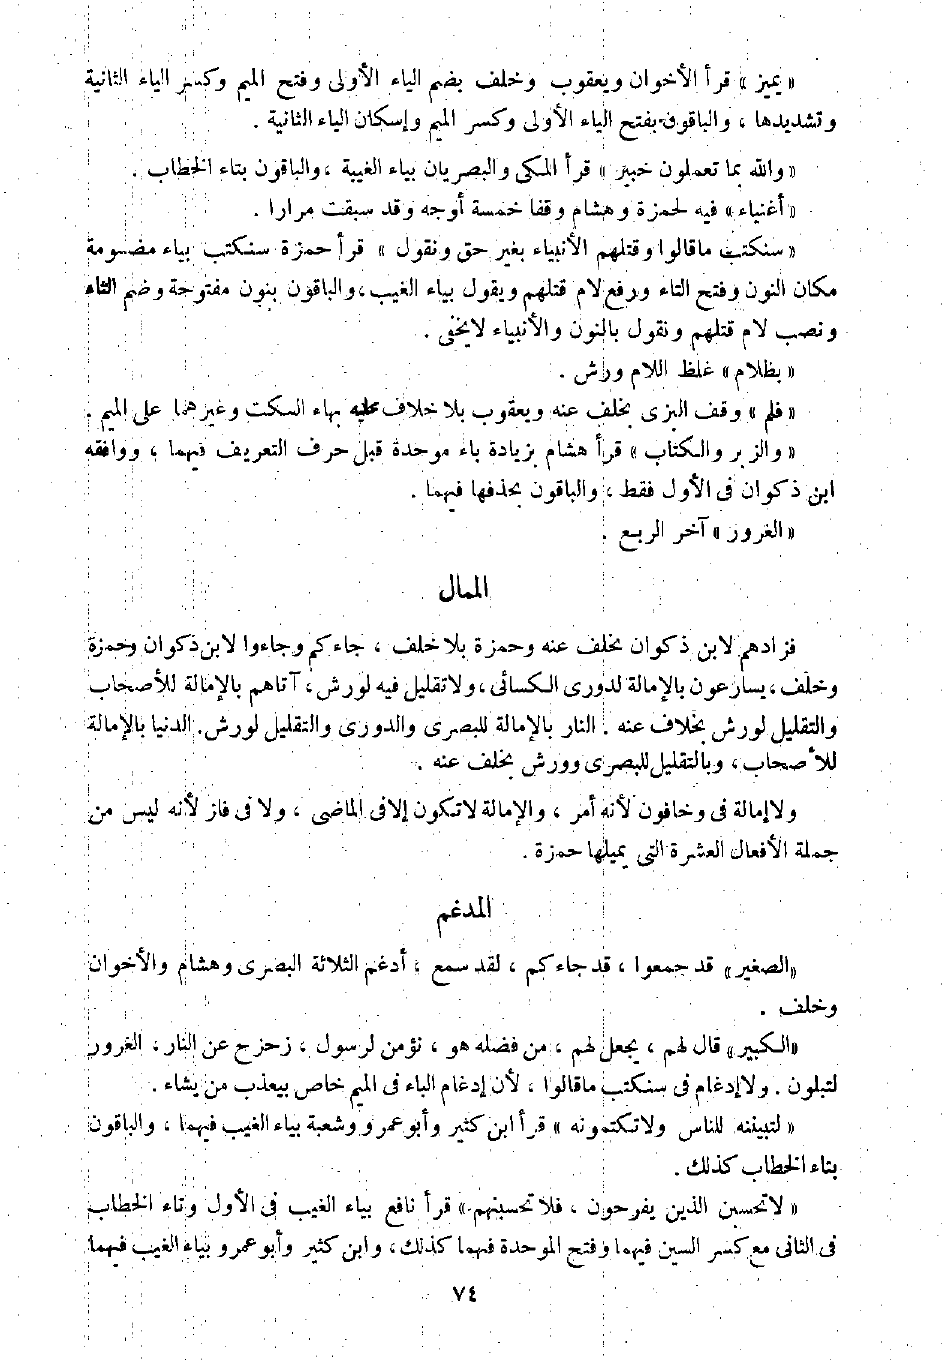 « يميز » قرأ الأخوان ويعقوب وخلف بضم الياء الأولى وفتح الميم وكسر الياء الثانية
وتشديدها ، والباقون بفتح الياء الأولى وكسر الميم وإسكان الياء الثانية .
« والله بما تعملون خبير » قرأ المكى والبصريان بياء الغيبة ، والباقون بتاء الخطاب .
« أغنياء » فيه لحمزة وهشام وقفا خمسة أوجه وقد سبقت مرارا .
« سنكتب ماقالوا وقتلهم الأنبياء بغير حق ونقول » قرأ حمزة سنكتب بياء مضمومة
مكان النون وفتح التاء ورفع لام قتلهم ويقول بياء الغيب ، والباقون بنون مفتوحة وضم التاء
ونصب لام قتلهم ونقول بالنون والأنبياء لايخفى .
« بظلام » غلظ اللام ورش .
« فلم » وقف البزى بخلف عنه ويعقوب بلا خلاف عليه بهاء السكت وغيرهما على الميم .
« والزبر والكتاب » قرأ هشام بزيادة باء موحدة قبل حرف التعريف فيهما ، ووافقه
ابن ذكوان فى الأول فقط ، والباقون بحذفها فيهما .
« الغرور » آخر الربع .
الممال
فزادهم لابن ذكوان بخلف عنه وحمزة بلا خلف ، جاءكم وجاءوا لابن ذكوان وحمزة
وخلف ، يسارعون بالإمالة لدورى الكسائى ، ولا تقليل فيه لورش ، آتاهم بالإمالة للأصحاب
والتقليل لورش بخلاف عنه . النار بالإمالة للبصرى والدورى والتقليل لورش . الدنيا بالإمالة
للأصحاب ، وبالتقليل للبصرى وورش بخلف عنه .
ولا إمالة فى وخافون لأنه أمر ، والإمالة لاتكون إلا فى الماضى ، ولا فى فاز لأنه ليس من
جملة الأفعال العشرة التى يميلها حمزة .
المدغم
« الصغير » قد جمعوا ، قد جاءكم ، لقد سمع ؛ أدغم الثلاثة البصرى وهشام والأخوان
وخلف .
« الكبير » قال لهم ، يجعل لهم ، من فضله هو ، نؤمن لرسول ، زحزح عن النار ، الغرور
لتبلون . ولا إدغام فى سنكتب ماقالوا ، لأن إدغام الباء فى الميم خاص بيعذب من يشاء .
« لتبيننه للناس ولاتكتمونه » قرأ ابن كثير وأبو عمرو وشعبة بياء الغيب فيهما ، والباقون
بتاء الخطاب كذلك .
« لاتحسبن الذين يفرحون ، فلا تحسبنهم » قرأ نافع بياء الغيب فى الأول وتاء الخطاب
فى الثانى مع كسر السين فيهما وفتح الموحدة فيهما كذلك ، وابن كثير وأبو عمرو بياء الغيب فيهما
٧٤